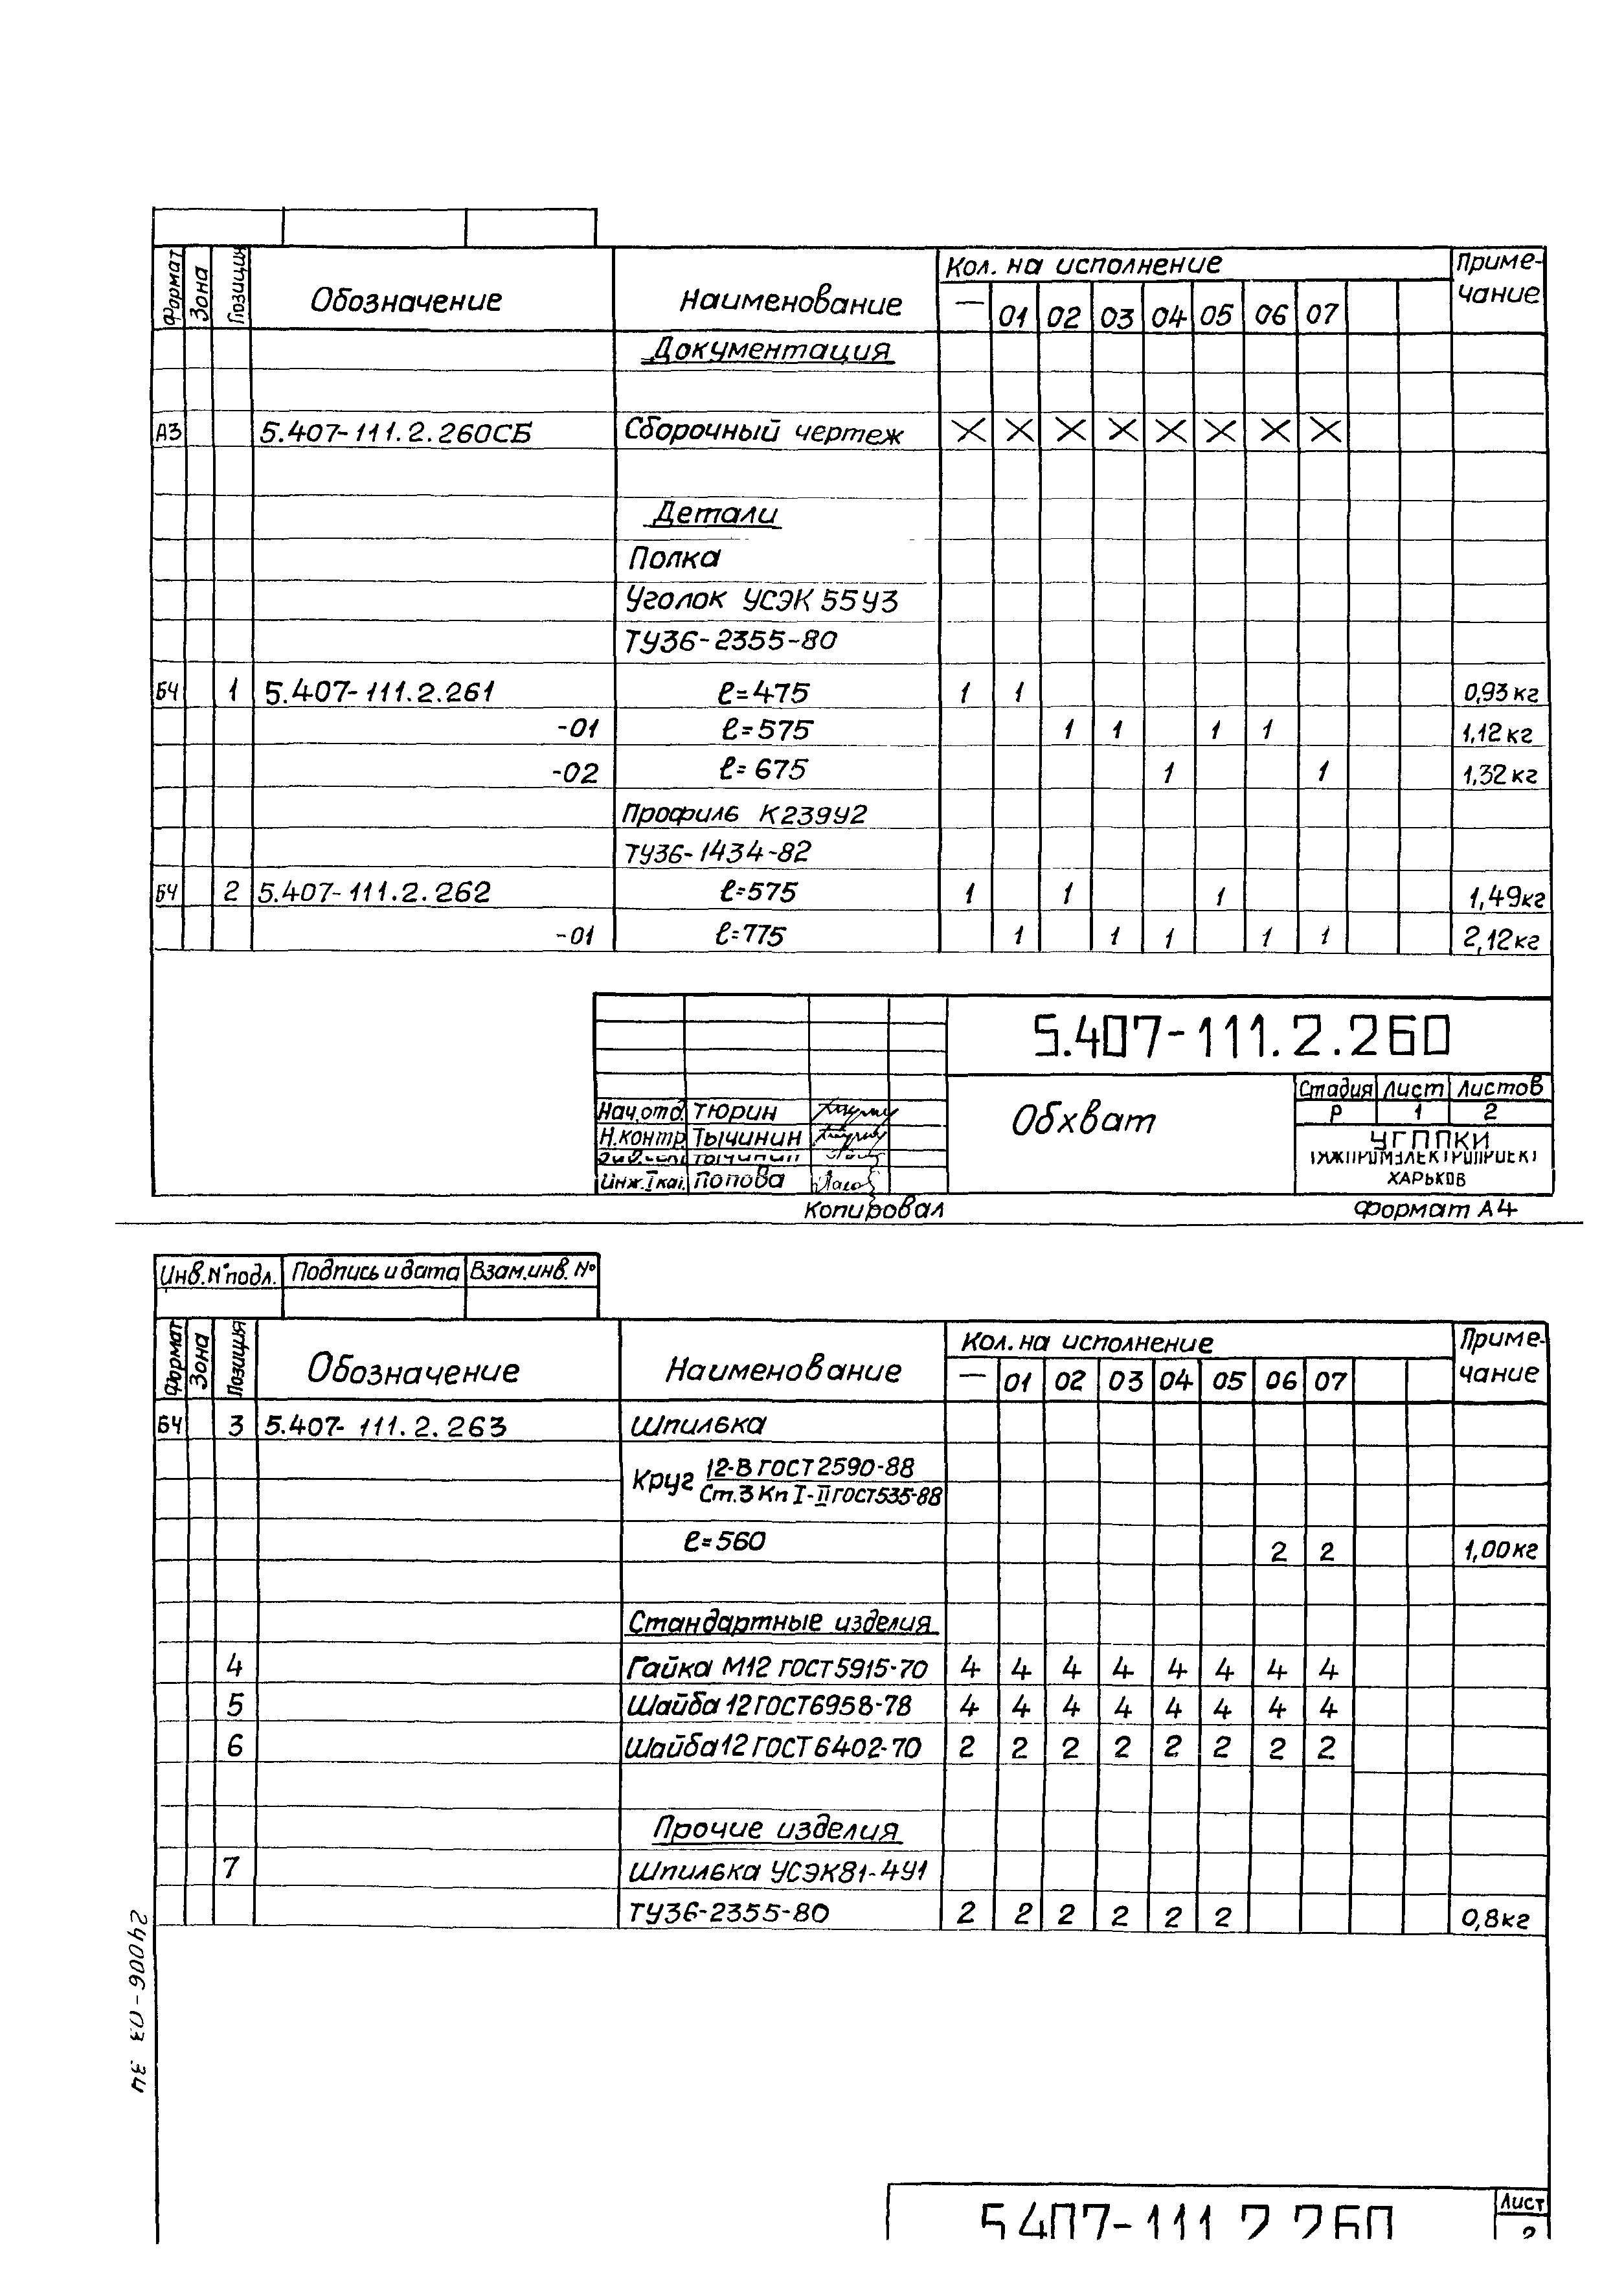 Формат Зона Позиция Обозначение Наименование Кол. на исполнение Приме-
чание
— 01 02 03 04 05 06 07
Документация
А3 5.407-111.2.260СБ Сборочный чертеж X X X X X X X X
Детали
Полка
Уголок УСЭК 55У3
ТУ36-2355-80
БЧ 1 5.407-111.2.261 ℓ=475 1 1 0,93 кг
-01 ℓ=575 1 1 1 1 1,12 кг
-02 ℓ=675 1 1 1,32 кг
Профиль К239У2
ТУ36-1434-82
БЧ 2 5.407-111.2.262 ℓ=575 1 1 1 1,49 кг
-01 ℓ=775 1 1 1 1 1 2,12 кг
5.407-111.2.260
Обхват
Стадия Лист Листов
Р 1 2
Нач.отд. Тюрин
Н.контр. Тычинин
Тычинин
Инж.I кат. Попова
УГППКИ
ХАРЬКОВ
Копировал Формат А4
Инв.№ подл. Подпись и дата Взам.инв. №
Формат Зона Позиция Обозначение Наименование Кол. на исполнение Приме-
чание
— 01 02 03 04 05 06 07
БЧ 3 5.407-111.2.263 Шпилька
Круг 12-В ГОСТ 2590-88
Ст.3 Кп I-II ГОСТ 535-88
ℓ=560 2 2 1,00 кг
Стандартные изделия
4 Гайка М12 ГОСТ 5915-70 4 4 4 4 4 4 4 4
5 Шайба 12 ГОСТ 6958-78 4 4 4 4 4 4 4 4
6 Шайба 12 ГОСТ 6402-70 2 2 2 2 2 2 2 2
Прочие изделия
7 Шпилька УСЭК81-4У1
ТУ36-2355-80 2 2 2 2 2 2 0,8 кг
24006-03 34
5.407-111.2.260
Лист
2